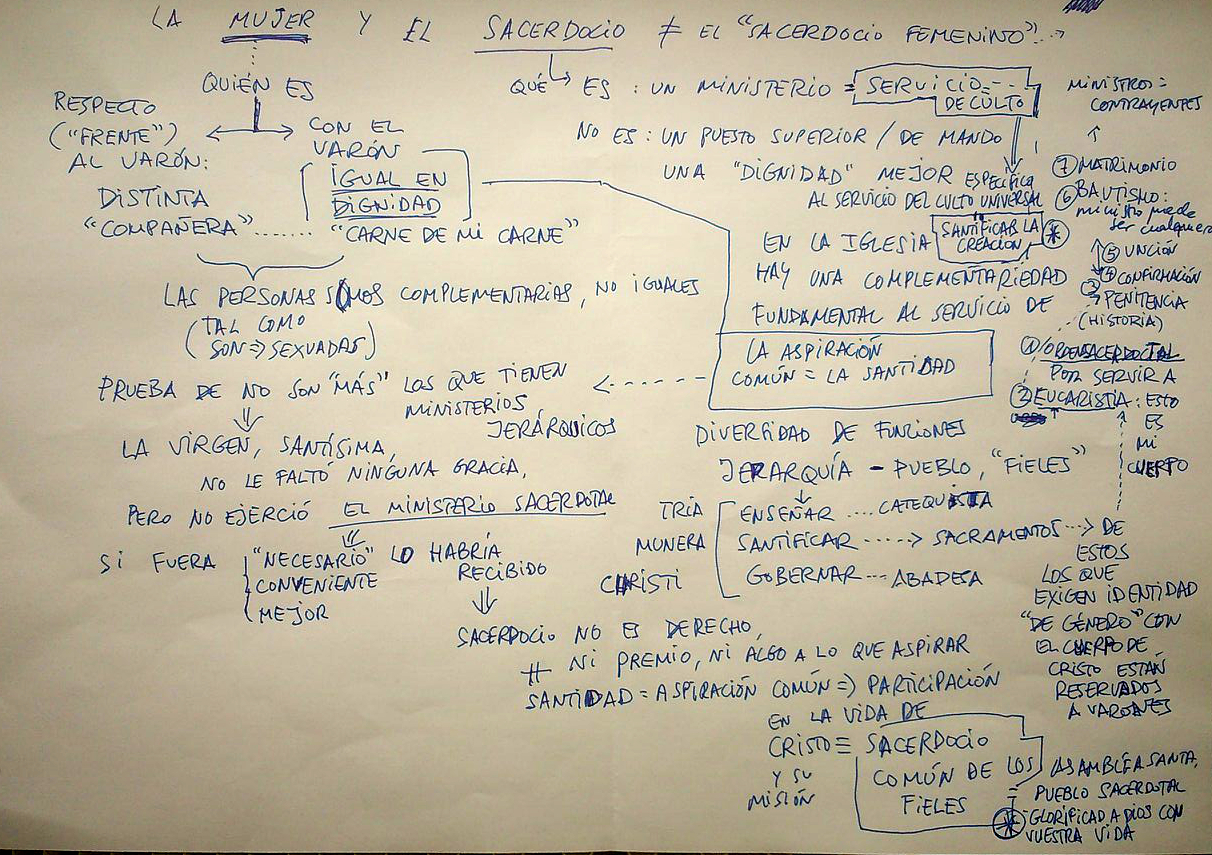 LA MUJER Y EL SACERDOCIO ≠ EL "SACERDOCIO FEMENINO"...→
QUIÉN ES
RESPECTO
("FRENTE")
AL VARÓN:
DISTINTA
"COMPAÑERA".......
CON EL
VARÓN
IGUAL EN
DIGNIDAD
"CARNE DE MI CARNE"
LAS PERSONAS SOMOS COMPLEMENTARIAS, NO IGUALES
(TAL COMO
SON ⇒ SEXUADAS)
PRUEBA DE NO SON "MÁS" LOS QUE TIENEN
MINISTERIOS
JERÁRQUICOS
LA VIRGEN, SANTÍSIMA,
NO LE FALTÓ NINGUNA GRACIA,
PERO NO EJERCIÓ EL MINISTERIO SACERDOTAL
SI FUERA "NECESARIO" LO HABRÍA
RECIBIDO
CONVENIENTE
MEJOR
SACERDOCIO NO ES DERECHO,
NI PREMIO, NI ALGO A LO QUE ASPIRAR
≠
SANTIDAD = ASPIRACIÓN COMÚN ⇒ PARTICIPACIÓN
EN LA VIDA DE
CRISTO ≡ SACERDOCIO
Y SU
MISIÓN
COMÚN DE LOS
FIELES
ASAMBLEA SANTA,
PUEBLO SACERDOTAL
= * GLORIFICAD A DIOS CON
VUESTRA VIDA
QUÉ ES : UN MINISTERIO = SERVICIO ---
DE CULTO
NO ES : UN PUESTO SUPERIOR / DE MANDO
UNA "DIGNIDAD" MEJOR
ESPECÍFICA
AL SERVICIO DEL CULTO UNIVERSAL
SANTIFICAR LA
CREACIÓN *
EN LA IGLESIA
HAY UNA COMPLEMENTARIEDAD
FUNDAMENTAL AL SERVICIO DE
LA ASPIRACIÓN
COMÚN = LA SANTIDAD
DIVERSIDAD DE FUNCIONES
JERARQUÍA - PUEBLO, "FIELES"
TRIA
MUNERA
CHRISTI
ENSEÑAR .... CATEQUISTA
SANTIFICAR -----> SACRAMENTOS ---> DE
GOBERNAR --- ABADESA
ESTOS
LOS QUE
EXIGEN IDENTIDAD
"DE GÉNERO" CON
EL CUERPO DE
CRISTO ESTÁN
RESERVADOS
A VARONES
MINISTROS =
CONTRAYENTES
↑
⑦ MATRIMONIO
⑥ BAUTISMO:
ministro puede
ser cualquiera
⑤ UNCIÓN
④ CONFIRMACIÓN
③ PENITENCIA
(HISTORIA)
① ORDEN SACERDOTAL
POR SERVIR A
② EUCARISTIA : ESTO
ES
MI
CUERPO